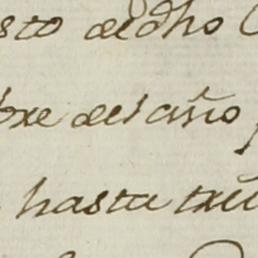 sto de dho
bre del año
hasta